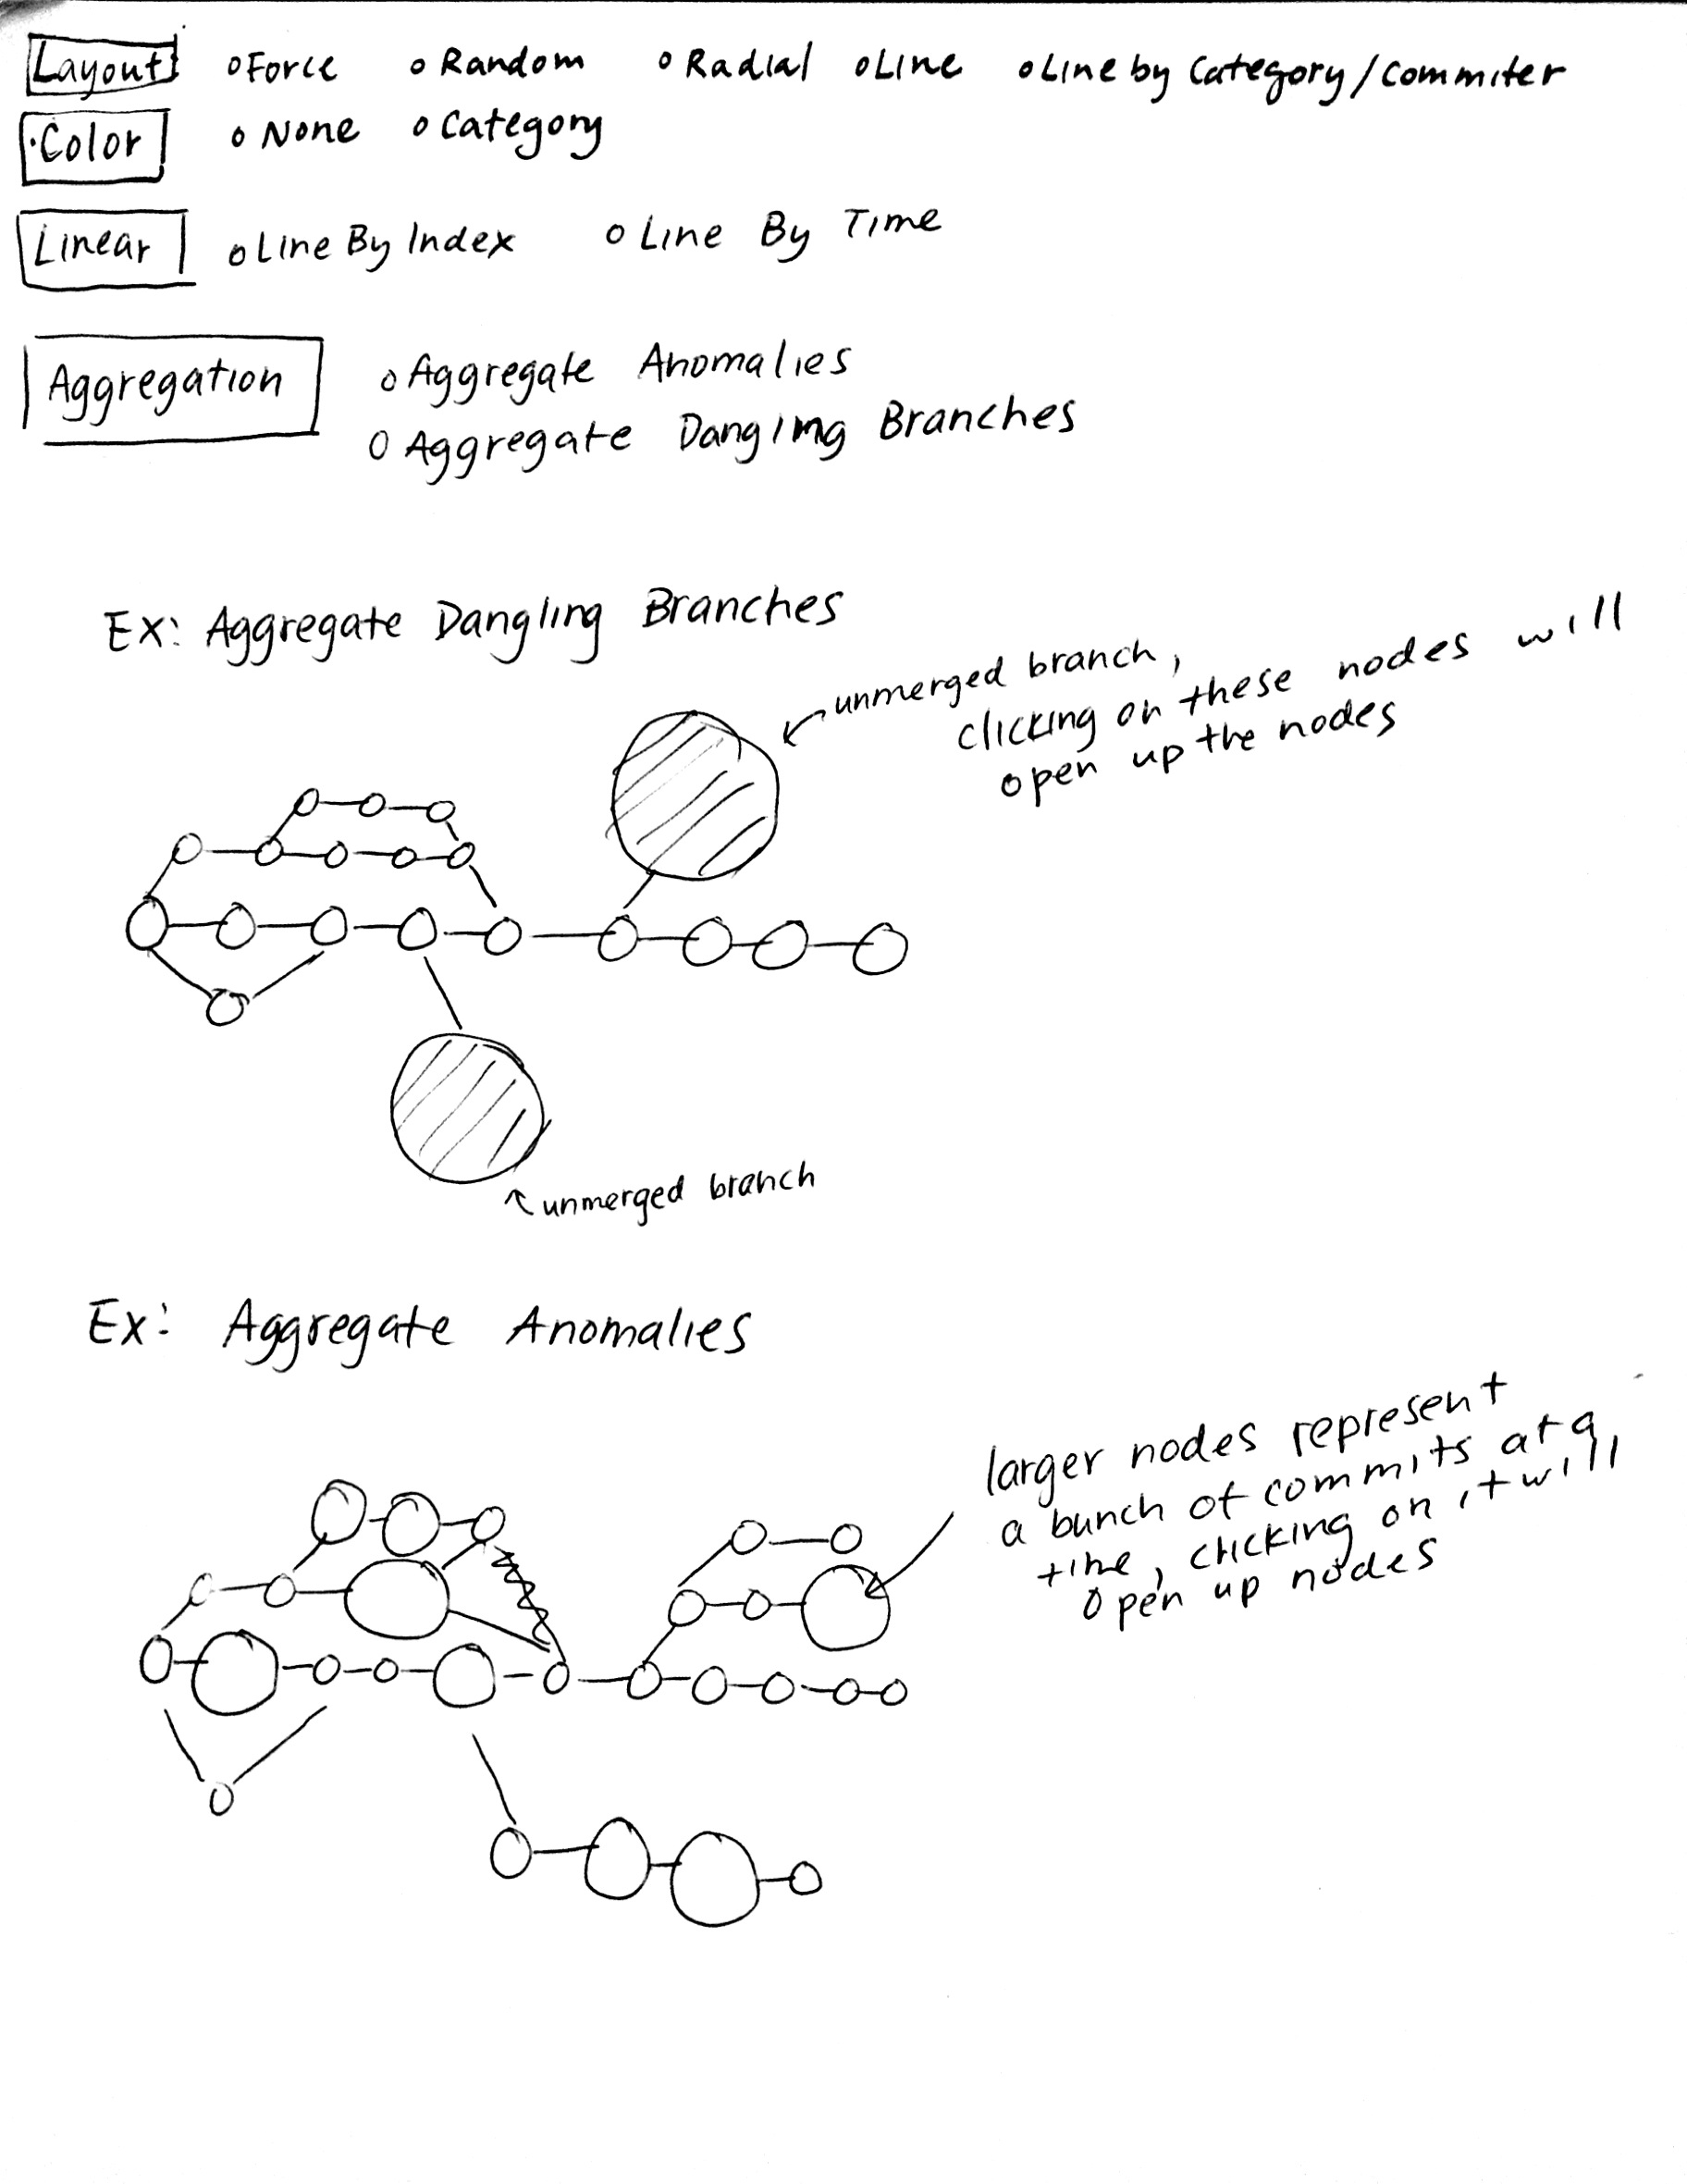 Layout o Force o Random o Radial o Line o Line by Category/Commiter
Color o None o Category
Linear o Line By Index o Line By Time
Aggregation o Aggregate Anomalies
o Aggregate Dangling Branches
Ex: Aggregate Dangling Branches
unmerged branch,
clicking on these nodes will
open up the nodes
unmerged branch
Ex: Aggregate Anomalies
larger nodes represent
a bunch of commits at a
time, clicking on it will
open up nodes